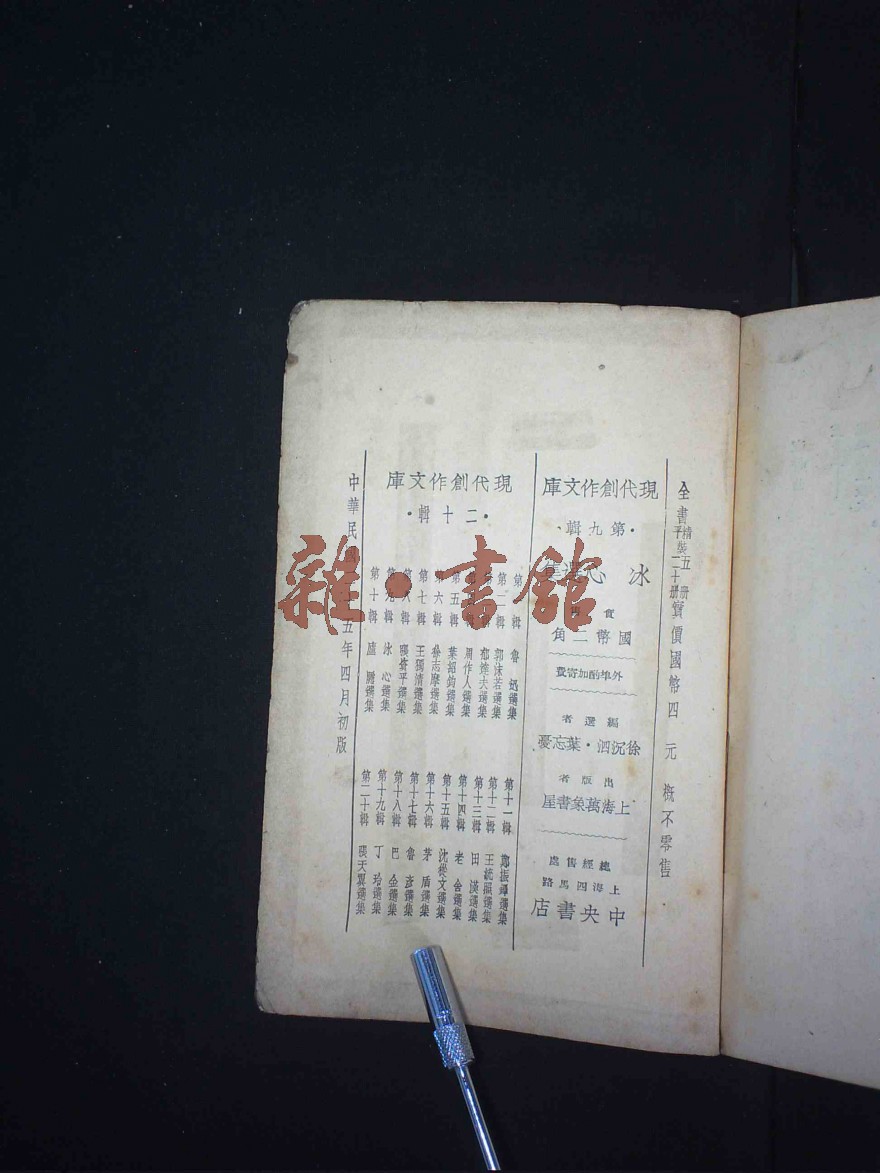 全書精裝五冊平裝二十冊實價國幣四元 概不零售
現代創作文庫
·第九輯·
冰心選集
實價
國幣二角
外埠酌加寄費
編選者
徐沉泗·葉忘憂
出版者
上海萬象書屋
總經售處
上海四馬路
中央書店
現代創作文庫
·二十輯·
第一輯 魯迅選集
第二輯 郭沫若選集
輯 郁達夫選集
輯 周作人選集
第五輯 葉紹鈞選集
第六輯 徐志摩選集
第七輯 王獨清選集
第八輯 張資平選集
第九輯 冰心選集
第十輯 廬隱選集
第十一輯 鄭振鐸選集
第十二輯 王統照選集
第十三輯 田漢選集
第十四輯 老舍選集
第十五輯 沈從文選集
第十六輯 茅盾選集
第十七輯 魯彥選集
第十八輯 巴金選集
第十九輯 丁玲選集
第二十輯 張天翼選集
中華民國二十五年四月初版
雜·書館